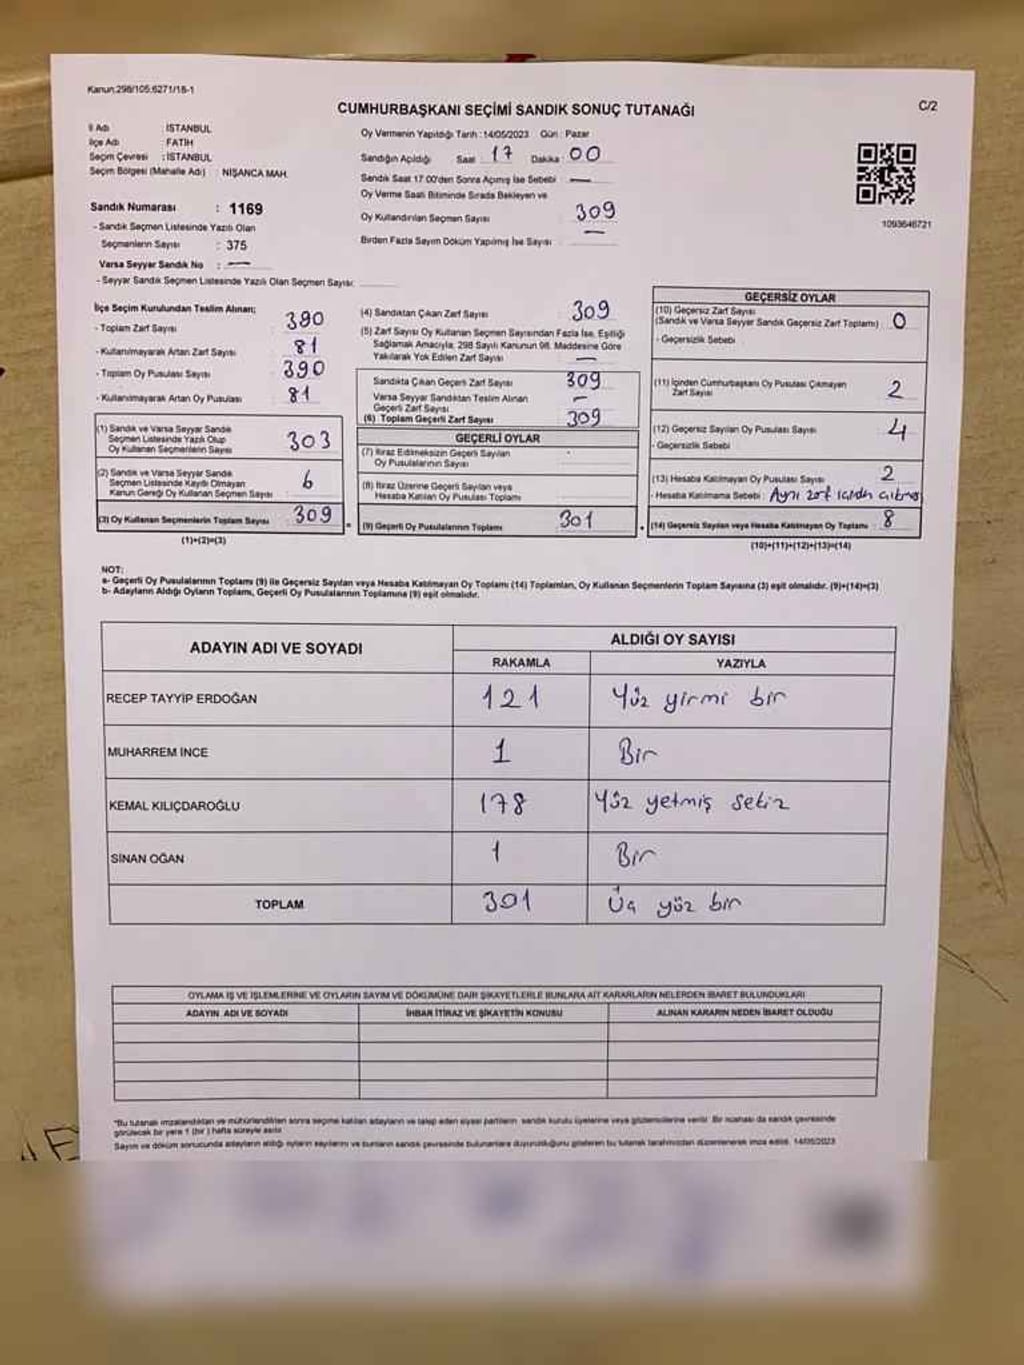 Kanun:298/105;6271/18-1
C/2
CUMHURBAŞKANI SEÇİMİ SANDIK SONUÇ TUTANAĞI
İl Adı : İSTANBUL
İlçe Adı : FATİH
Seçim Çevresi : İSTANBUL
Seçim Bölgesi (Mahalle Adı) : NİŞANCA MAH.
Sandık Numarası : 1169
- Sandık Seçmen Listesinde Yazılı Olan
Seçmenlerin Sayısı : 375
Varsa Seyyar Sandık No : —
- Seyyar Sandık Seçmen Listesinde Yazılı Olan Seçmen Sayısı:
Oy Vermenin Yapıldığı Tarih : 14/05/2023 Gün : Pazar
Sandığın Açıldığı Saat : 17 Dakika : 00
Sandık Saat 17:00'den Sonra Açılmış İse Sebebi : —
Oy Verme Saati Bitiminde Sırada Bekleyen ve
Oy Kullandırılan Seçmen Sayısı : 309
Birden Fazla Sayım Döküm Yapılmış İse Sayısı : —
1093646721
İlçe Seçim Kurulundan Teslim Alınan;
- Toplam Zarf Sayısı : 390
- Kullanılmayarak Artan Zarf Sayısı : 81
- Toplam Oy Pusulası Sayısı : 390
- Kullanılmayarak Artan Oy Pusulası : 81
(1) Sandık ve Varsa Seyyar Sandık
Seçmen Listesinde Yazılı Olup
Oy Kullanan Seçmenlerin Sayısı 303
(2) Sandık ve Varsa Seyyar Sandık
Seçmen Listesinde Kaydı Olmayan
Kanun Gereği Oy Kullanan Seçmen Sayısı 6
(3) Oy Kullanan Seçmenlerin Toplam Sayısı 309
(1)+(2)=(3)
(4) Sandıktan Çıkan Zarf Sayısı 309
(5) Zarf Sayısı Oy Kullanan Seçmen Sayısından Fazla İse, Eşitliği
Sağlamak Amacıyla, 298 Sayılı Kanunun 98. Maddesine Göre
Yakılarak Yok Edilen Zarf Sayısı —
Sandıkta Çıkan Geçerli Zarf Sayısı 309
Varsa Seyyar Sandıktan Teslim Alınan
Geçerli Zarf Sayısı —
(6) Toplam Geçerli Zarf Sayısı 309
GEÇERLİ OYLAR
(7) İtiraz Edilmeksizin Geçerli Sayılan
Oy Pusulalarının Sayısı
(8) İtiraz Üzerine Geçerli Sayılan veya
Hesaba Katılan Oy Pusulası Toplamı
(9) Geçerli Oy Pusulalarının Toplamı 301
GEÇERSİZ OYLAR
(10) Geçersiz Zarf Sayısı
(Sandık ve Varsa Seyyar Sandık Geçersiz Zarf Toplamı) 0
- Geçersizlik Sebebi
(11) İçinden Cumhurbaşkanı Oy Pusulası Çıkmayan
Zarf Sayısı 2
(12) Geçersiz Sayılan Oy Pusulası Sayısı 4
- Geçersizlik Sebebi
(13) Hesaba Katılmayan Oy Pusulası Sayısı 2
- Hesaba Katılmama Sebebi : Aynı zarf içinden çıkması
(14) Geçersiz Sayılan veya Hesaba Katılmayan Oy Toplamı 8
(10)+(11)+(12)+(13)=(14)
NOT:
a- Geçerli Oy Pusulalarının Toplamı (9) ile Geçersiz Sayılan veya Hesaba Katılmayan Oy Toplamı (14) Toplamları, Oy Kullanan Seçmenlerin Toplam Sayısına (3) eşit olmalıdır. (9)+(14)=(3)
b- Adayların Aldığı Oyların Toplamı, Geçerli Oy Pusulalarının Toplamına (9) eşit olmalıdır.
ADAYIN ADI VE SOYADI
ALDIĞI OY SAYISI
RAKAMLA YAZIYLA
RECEP TAYYİP ERDOĞAN 121 Yüz yirmi bir
MUHARREM İNCE 1 Bir
KEMAL KILIÇDAROĞLU 178 Yüz yetmiş sekiz
SİNAN OĞAN 1 Bir
TOPLAM 301 Üç yüz bir
OYLAMA İŞ VE İŞLEMLERİNE VE OYLARIN SAYIM VE DÖKÜMÜNE DAİR ŞİKAYETLERLE BUNLARA AİT KARARLARIN NELERDEN İBARET BULUNDUKLARI
ADAYIN ADI VE SOYADI İHBAR İTİRAZ VE ŞİKAYETİN KONUSU ALINAN KARARIN NEDEN İBARET OLDUĞU
*Bu tutanak imzalandıktan ve mühürlendikten sonra seçime katılan adayların ve talep eden siyasi partilerin sandık kurulu üyelerine veya gözlemcilerine verilir. Bir nüshası da sandık çevresinde
görülecek bir yere 1 (bir) hafta süreyle asılır.
Sayım ve döküm sonucunda adayların aldığı oyların sayılarını ve bunların sandık çevresinde bulunanlara duyurulduğunu gösteren bu tutanak tarafımızdan düzenlenerek imza edildi. 14/05/2023